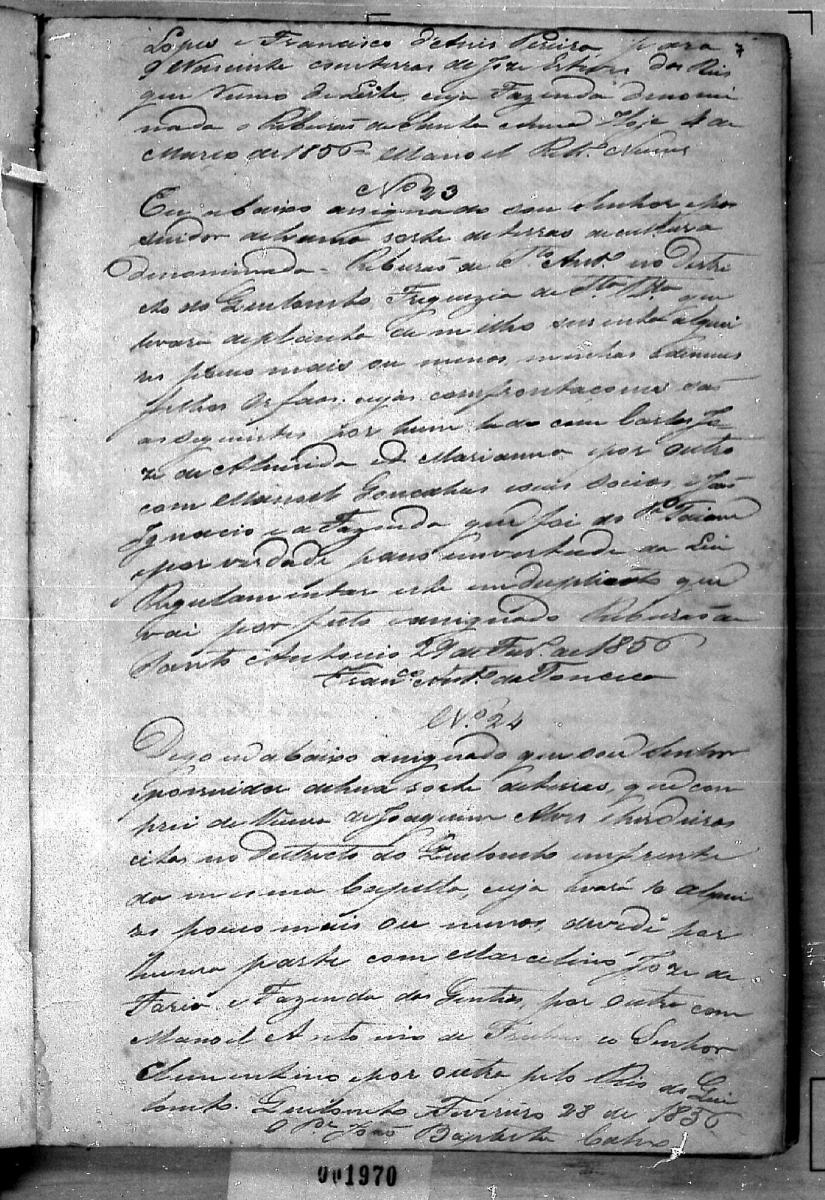 Lopes e Francisco d'Assis Pereira para 7
o Nascente com terras de Joze Esteves dos Reis
que Vemos de Leste, cuja Fazenda denomi
nada o Ribeirão de Santa Hoje 4 de
Marco de 1856 = Manoel Nunes
No 23
Eu abaixo assignado sou Senhor e pos
suidor de huma sorte de terras de cultura
denominada = Ribeirão de Sto Anto no Destri
cto do Quilombo Freguezia de
levará deplanta de milho secenta alquei
res pouco mais ou menos, minhas e de meus
filhos Orfaos. cujas confrontacoens são
as seguintes por hum lado com Carlos Jo
ze de Almeida e Marianna e por outro
com Manoel Goncalves e seus Socios e João
Ignacio e a Fazenda que foi do
e por verdade passo em vertude da Lei
Regulamentar este em duplicata que
vai por feito e assignado Ribeirão de
Santo Antonio 29 de Fevo de 1856
Franco Anto da Fonceca
No 24
Digo eu abaixo assignado que sou Senhor
e possuidor de hua sorte de terras, que com
prei de Viuva de Joaquim Alves e herdeiros
citas no Destricto do Quilombo em frente
da mesma Capella, cuja levará 10 alquei
res pouco mais ou menos, devede por
huma parte com Marcelino Joze de
Faria e Fazenda dos Gentios, por outro com
Manoel Antonio de Freitas e o Senhor
Clementino e por outra pelo Rio do Qui
lombo. Quilombo Fevereiro 28 de 1856
O Pe João Baptista
001970